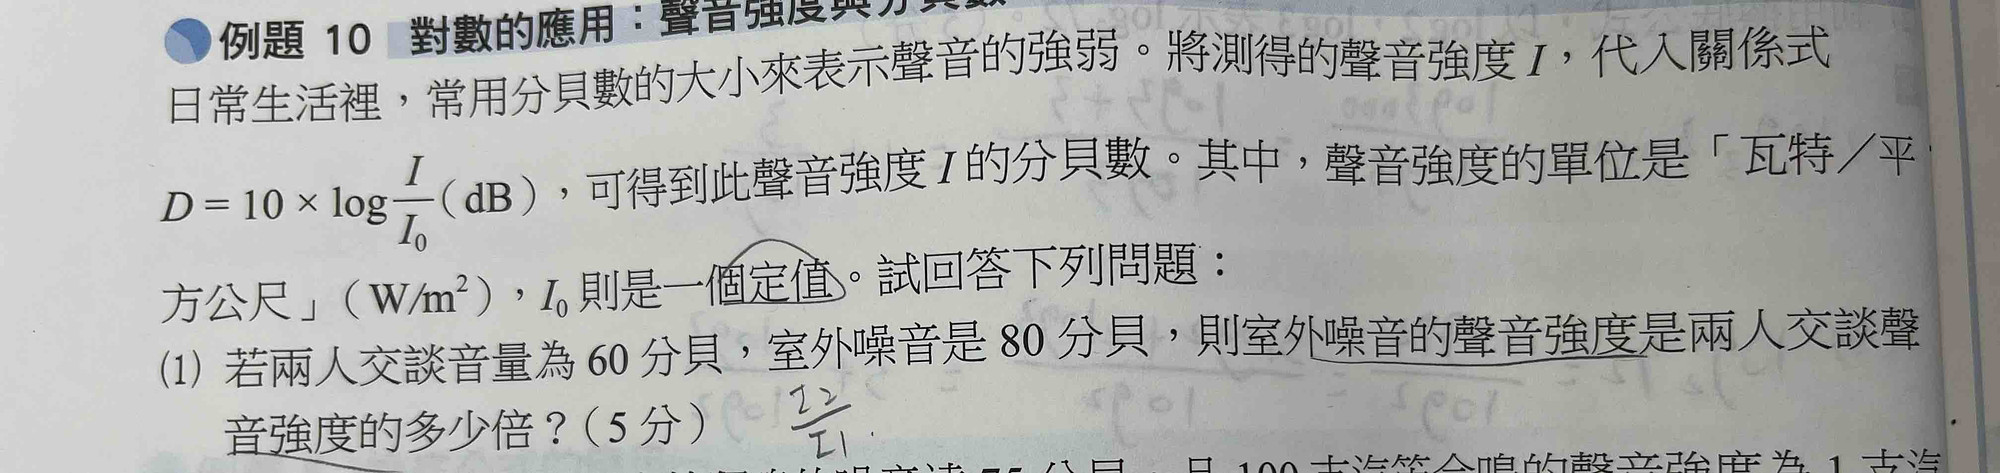 例題 10 對數的應用：聲音強度與分貝數
日常生活裡，常用分貝數的大小來表示聲音的強弱。將測得的聲音強度 I，代入關係式
D = 10 × log I/I₀ (dB)，可得到此聲音強度 I 的分貝數。其中，聲音強度的單位是「瓦特／平
方公尺」(W/m²)，I₀ 則是一個定值。試回答下列問題：
(1) 若兩人交談音量為 60 分貝，室外噪音是 80 分貝，則室外噪音的聲音強度是兩人交談聲
音強度的多少倍？(5 分) I2/I1
75 分貝，且 100 支汽笛合鳴的聲音強度為 1 支汽